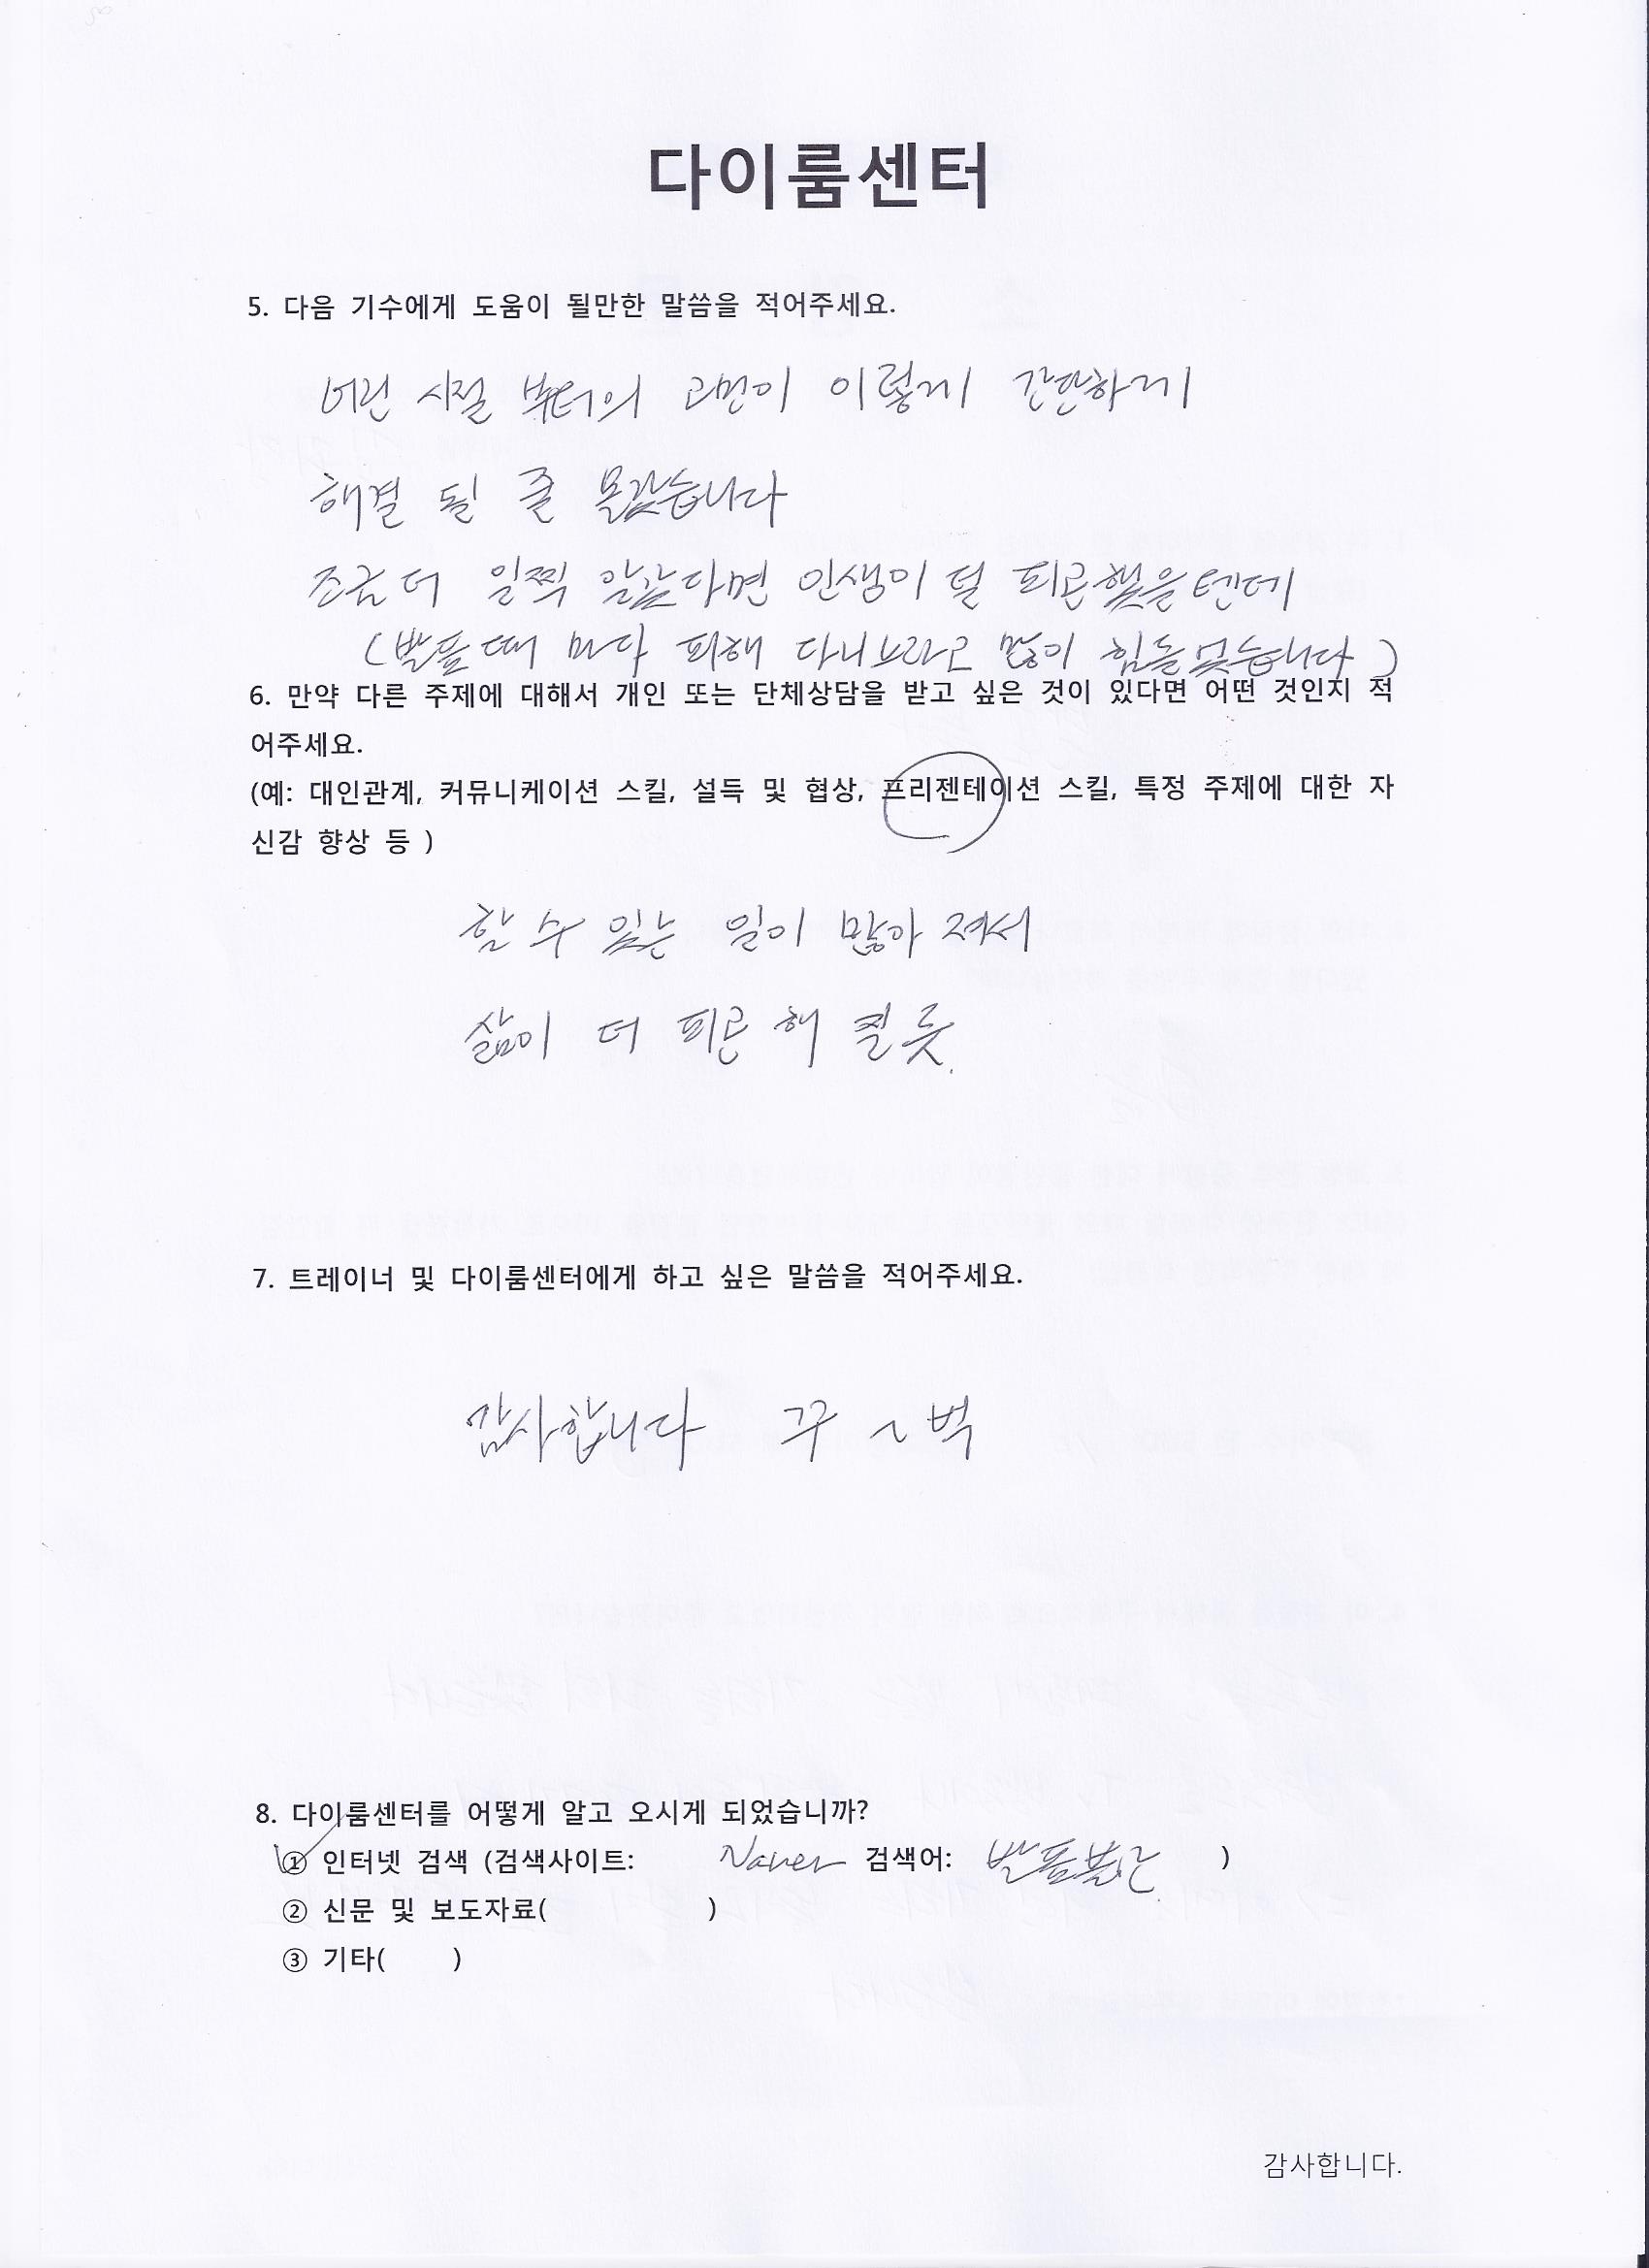 다이룸센터
5. 다음 기수에게 도움이 될만한 말씀을 적어주세요.
어린 시절 부터의 고민이 이렇게 간단하게
해결 될 줄 몰랐습니다
조금 더 일찍 알았다면 인생이 덜 피곤했을텐데
(발표때 마다 피해 다니느라고 많이 힘들었습니다)
6. 만약 다른 주제에 대해서 개인 또는 단체상담을 받고 싶은 것이 있다면 어떤 것인지 적
어주세요.
(예: 대인관계, 커뮤니케이션 스킬, 설득 및 협상, 프리젠테이션 스킬, 특정 주제에 대한 자
신감 향상 등 )
할 수 있는 일이 많아 져서
삶이 더 피곤 해 질 듯.
7. 트레이너 및 다이룸센터에게 하고 싶은 말씀을 적어주세요.
감사합니다 꾸 ~ 벅
8. 다이룸센터를 어떻게 알고 오시게 되었습니까?
① 인터넷 검색 (검색사이트: Naver 검색어: 발표불안 )
② 신문 및 보도자료( )
③ 기타( )
감사합니다.